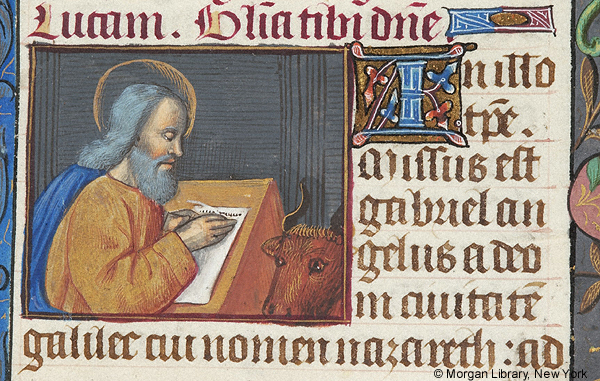 Lucam. Glia tibi dne
In illo
tpe.
Missus est
gabriel an
gelus a deo
in civitate
galilee cui nomen nazareth : ad
© Morgan Library, New York